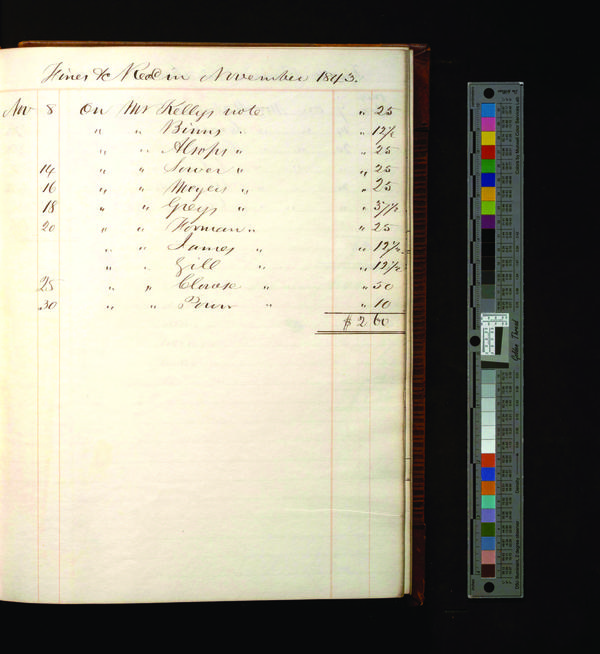 Fines &c Recd in November 1843.
Nov 8 On Mr Kellys note " 25
" " Binns " " 12½
" " Alsops " " 25
14 " " Sower " " 25
16 " " Meyers " " 25
18 " " Greys " " 37½
20 " " Norman " " 25
" " James " " 12½
" " Zill " " 12½
25 " " " 50
30 " " " 10
$ 2 60